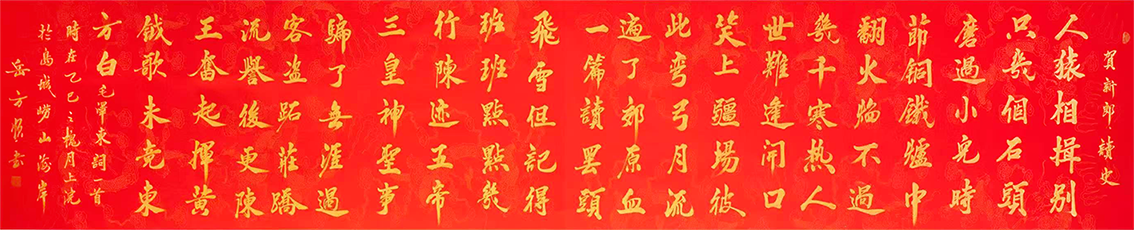 賀新郎讀史
人猿相揖別
只幾個石頭
磨過小兒時
節銅鐵爐中
翻火焰不過
幾千寒熱人
世難逢開口
笑上疆場彼
此彎弓月流
遍了郊原血
一篇讀罷頭
飛雪但記得
班班點點幾
行陳迹五帝
三皇神聖事
騙了無涯過
客盜跖莊蹻
流譽後更陳
王奮起揮黃
鉞歌未竟東
方白 毛澤東詞一首
時在乙巳之槐月上浣
於島城嶗山海岸
岳方書